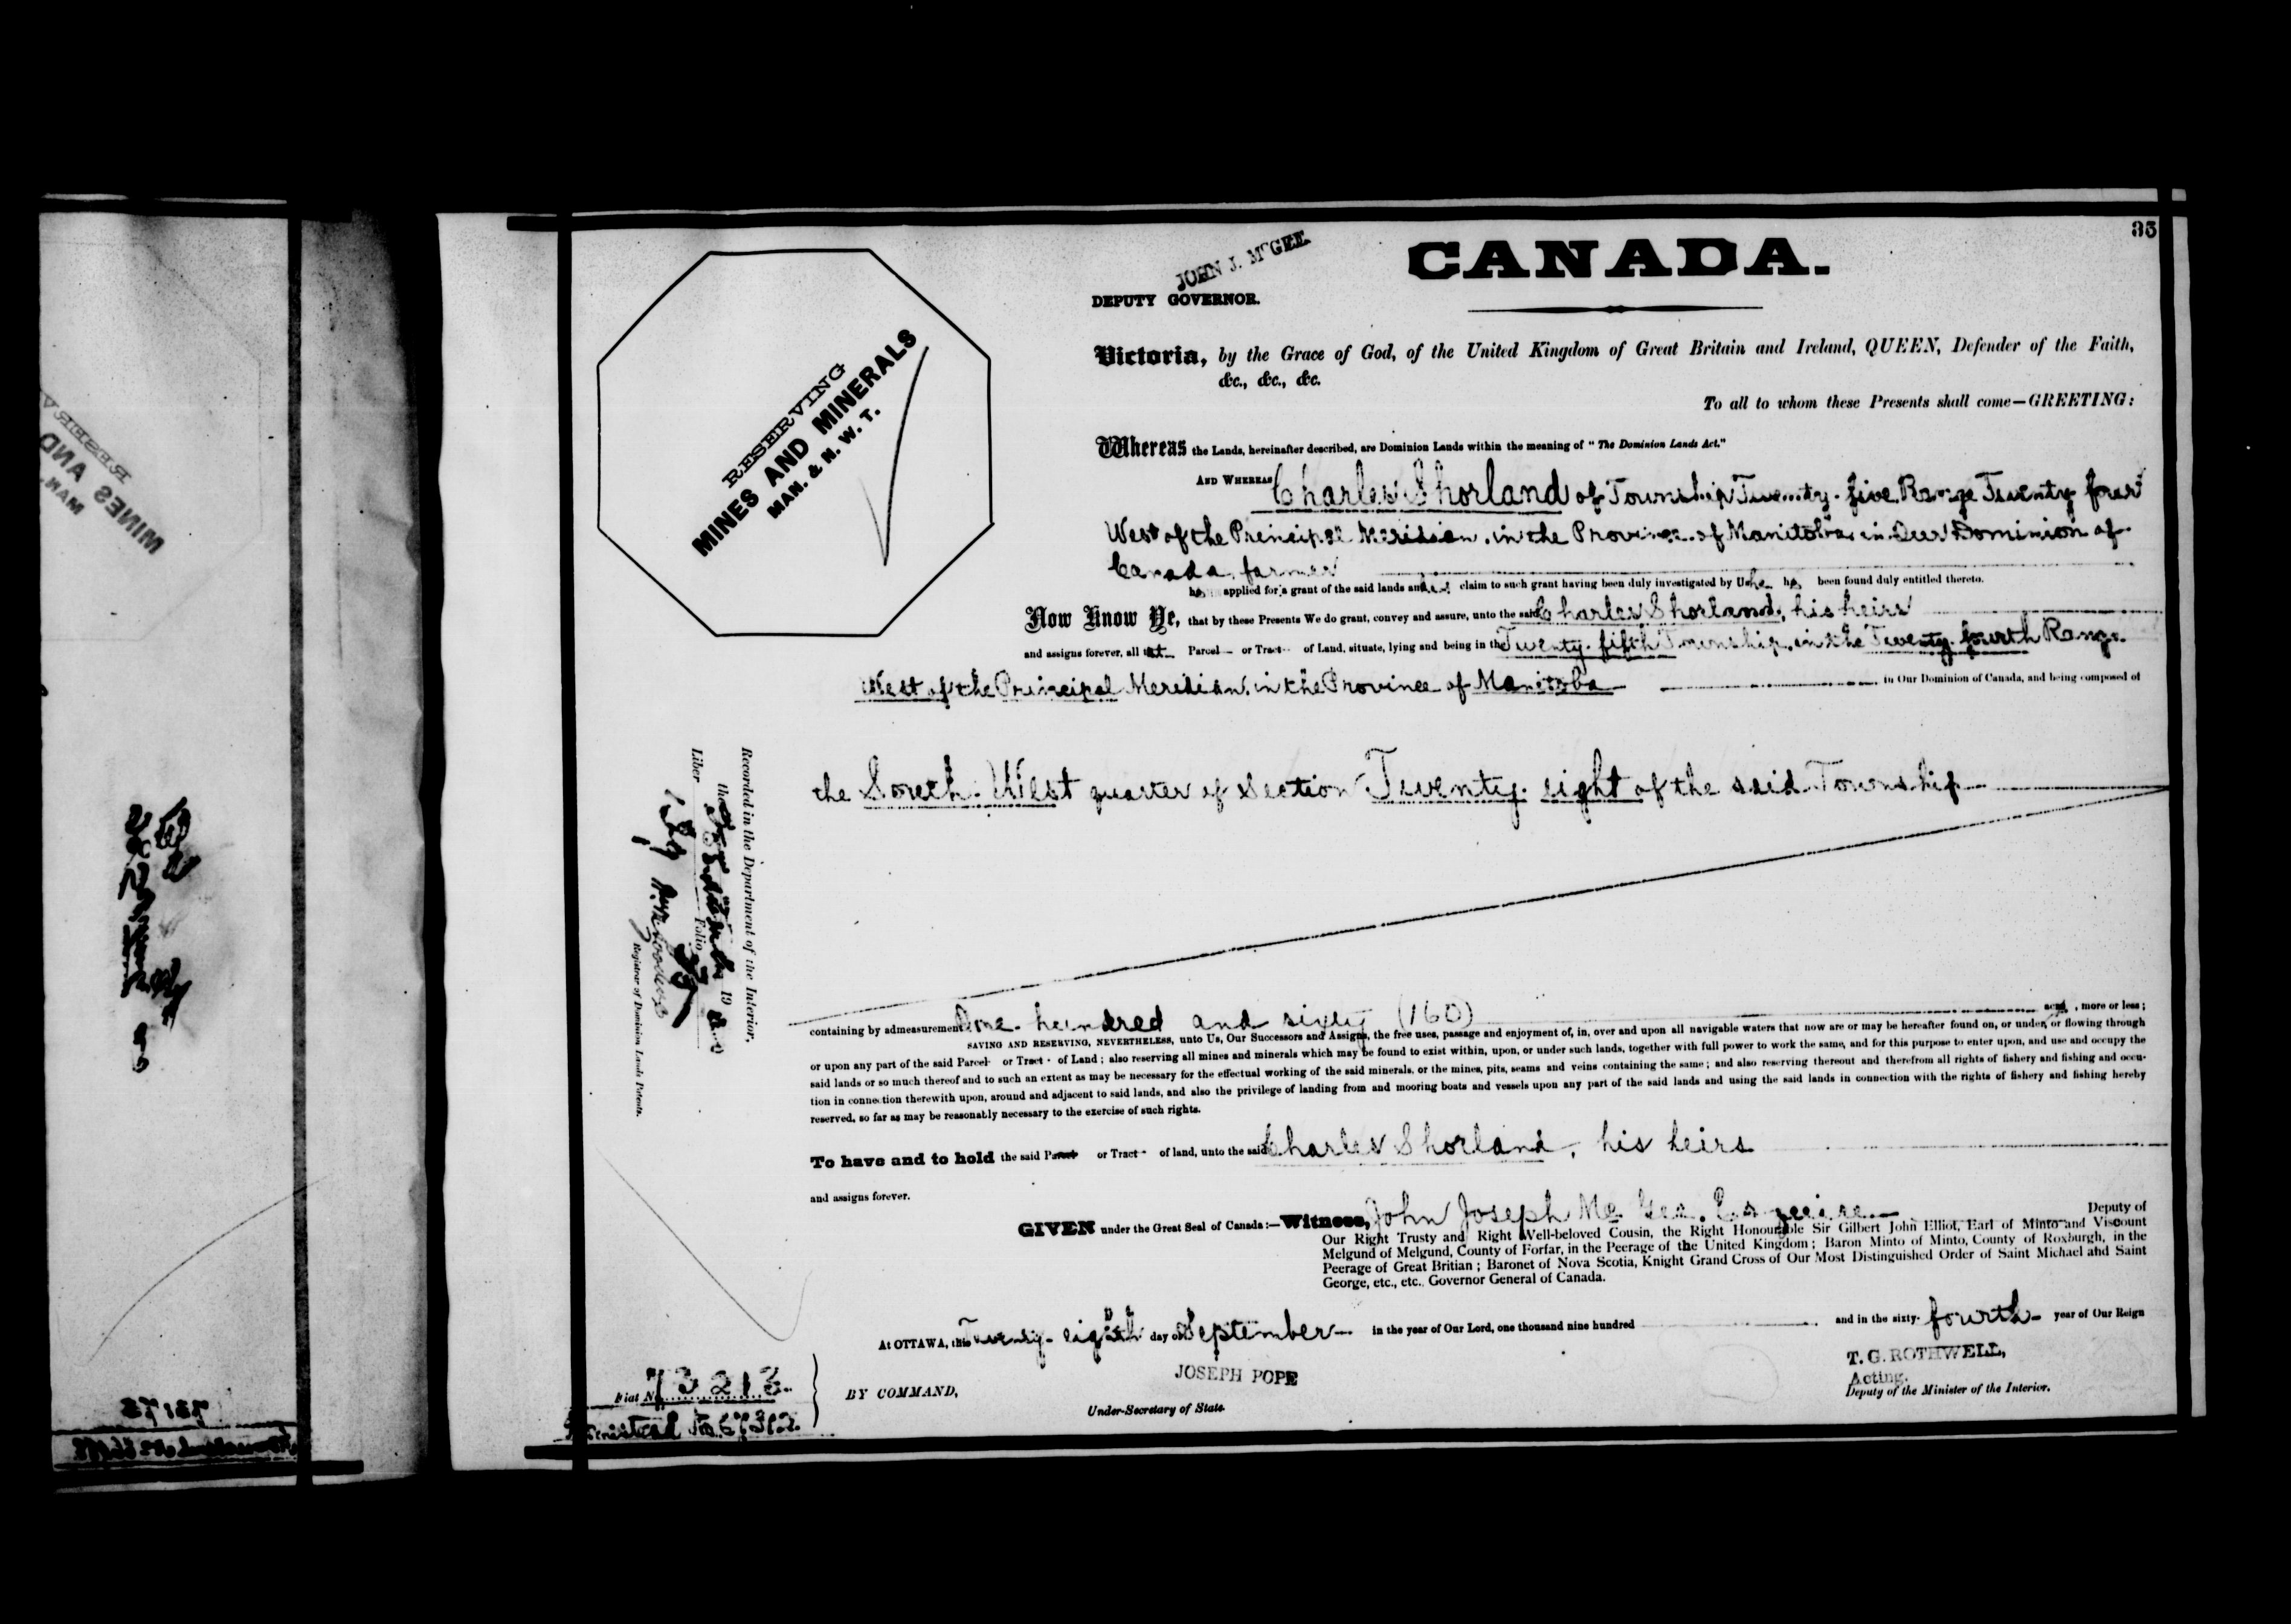 35
CANADA.
JOHN J. McGEE
DEPUTY GOVERNOR.
RESERVING
MINES AND MINERALS
MAN. & N. W. T.
Victoria, by the Grace of God, of the United Kingdom of Great Britain and Ireland, QUEEN, Defender of the Faith,
&c., &c., &c.
To all to whom these Presents shall come—GREETING:
Whereas the Lands, hereinafter described, are Dominion Lands within the meaning of "The Dominion Lands Act."
AND WHEREAS Charles Shorland of Township Twenty-five, Range Twenty four
West of the Principal Meridian, in the Province of Manitoba in Our Dominion of
Canada, farmer
has applied for a grant of the said lands and his claim to such grant having been duly investigated by Us he has been found duly entitled thereto.
Now Know Ye, that by these Presents We do grant, convey and assure, unto the said Charles Shorland, his heirs
and assigns forever, all that Parcel or Tract of Land, situate, lying and being in the Twenty-fifth Township, in the Twenty-fourth Range
West of the Principal Meridian, in the Province of Manitoba in Our Dominion of Canada, and being composed of
the South-West quarter of Section Twenty-eight of the said Township
containing by admeasurement One hundred and sixty (160) acres, more or less;
SAVING AND RESERVING, NEVERTHELESS, unto Us, Our Successors and Assigns, the free uses, passage and enjoyment of, in, over and upon all navigable waters that now are or may be hereafter found on, or under, or flowing through
or upon any part of the said Parcel or Tract of Land; also reserving all mines and minerals which may be found to exist within, upon, or under such lands, together with full power to work the same, and for this purpose to enter upon, and use and occupy the
said lands or so much thereof and to such an extent as may be necessary for the effectual working of the said minerals, or the mines, pits, seams and veins containing the same; and also reserving thereout and therefrom all rights of fishery and fishing and occu-
tion in connection therewith upon, around and adjacent to said lands, and also the privilege of landing from and mooring boats and vessels upon any part of the said lands and using the said lands in connection with the rights of fishery and fishing hereby
reserved, so far as may be reasonably necessary to the exercise of such rights.
To have and to hold the said Parcel or Tract of land, unto the said Charles Shorland, his heirs
and assigns forever.
GIVEN under the Great Seal of Canada:—Witness, John Joseph McGee, Esquire Deputy of
Our Right Trusty and Right Well-beloved Cousin, the Right Honourable Sir Gilbert John Elliot, Earl of Minto and Viscount
Melgund of Melgund, County of Forfar, in the Peerage of the United Kingdom; Baron Minto of Minto, County of Roxburgh, in the
Peerage of Great Britian; Baronet of Nova Scotia, Knight Grand Cross of Our Most Distinguished Order of Saint Michael and Saint
George, etc., etc. Governor General of Canada.
At OTTAWA, this Twenty-eighth day of September in the year of Our Lord, one thousand nine hundred and in the sixty-fourth year of Our Reign
T. G. ROTHWELL,
Acting.
Deputy of the Minister of the Interior.
BY COMMAND,
JOSEPH POPE
Under-Secretary of State.
Fiat No. 73213
Homestead No. 67312
Recorded in the Department of the Interior,
the 19
Liber Folio
Registrar of Dominion Lands Patents.